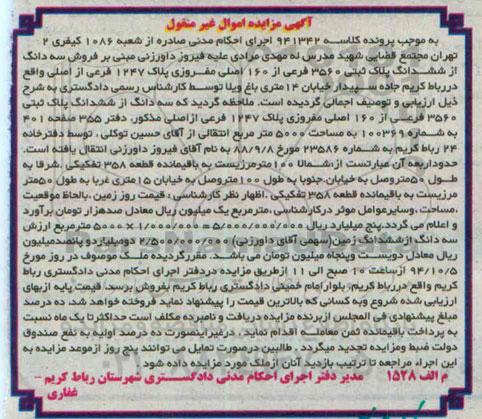 آگهی مزایده اموال غیر منقول
به موجب پرونده کلاسه ۹۴۱۳۴۲ اجرای احکام مدنی صادره از شعبه ۱۰۸۶ کیفری ۲
تهران مجتمع قضایی شهید مدرس له مهدی مرادی علیه فیروز داورزنی مبنی بر فروش سه دانگ
از ششدانگ پلاک ثبتی ۳۵۶۰ فرعی از ۱۶۰ اصلی مفروزی پلاک ۱۲۴۷ فرعی از اصلی واقع
دررباط کریم جاده سپیدار خیابان ۱۴ متری باغ ویلا توسط کارشناس رسمی دادگستری به شرح
ذیل ارزیابی و توصیف اجمالی گردیده است. ملاحظه گردید که سه دانگ از ششدانگ پلاک ثبتی
۳۵۶۰ فرعی از ۱۶۰ اصلی مفروزی پلاک ۱۲۴۷ فرعی ازاصلی مذکور، دفتر ۳۵۵ صفحه ۴۰۱
به شماره ۱۰۰۳۶۹ به مساحت ۵۰۰۰ متر مربع انتقالی از آقای حسین توکلی ، توسط دفترخانه
۲۴ رباط کریم به شماره ۲۳۵۸۶ مورخ ۸۸/۹/۲۸ به نام آقای فیروز داورزنی انتقال یافته است.
حدوداربعه آن عبارتست از:شمالا ۱۰۰مترمرزیست به باقیمانده قطعه ۳۵۸ تفکیکی ،شرقا به
طول ۵۰متروصل به خیابان،جنوبا به طول ۱۰۰متروصل به خیابان ۱۵متری غربا به طول ۵۰متر
مرزیست به باقیمانده قطعه ۳۵۸ تفکیکی .اظهار نظر کارشناسی : قیمت روز زمین ،بالحاظ موقعیت
،مساحت ،وسایرعوامل موثر درکارشناسی ،مترمربع یک میلیون ریال معادل صدهزار تومان برآورد
و اعلام می گردد.پنج میلیارد ریال ۵/۰۰۰/۰۰۰/۰۰۰ =۱/۰۰۰/۰۰۰ × ۵۰۰۰ مترمربع ارزش
سه دانگ ازششدانگ زمین(سهمی آقای داورزنی) به ۲/۵۰۰/۰۰۰/۰۰۰ دومیلیاردو پانصدمیلیون
ریال معادل دویست وپنجاه میلیون تومان می باشد. مقررگردیده ملک موصوف در روز مورخ
۹۴/۱۰/۵ ازساعت ۱۰ صبح الی ۱۱ ازطریق مزایده دردفتر اجرای احکام مدنی دادگستری رباط
کریم واقع دررباط کریم، بلوارامام خمینی دادگستری رباط کریم بفروش برسد. قیمت پایه ازبهای
ارزیابی شده شروع وبه کسانی که بالاترین قیمت را پیشنهاد نماید فروخته خواهد شد، ده درصد
مبلغ پیشنهادی فی المجلس ازبرنده مزایده دریافت و نامبرده مکلف است حداکثرتا یک ماه نسبت
به پرداخت باقیمانده ثمن معامله اقدام نماید. درغیراینصورت ده درصد اولیه به نفع صندوق
دولت ضبط ومزایده تجدید میگردد . طالبین درصورت تمایل می توانند پنج روز ازموعد مزایده به
این اجراء مراجعه تا ترتیب بازدید آنان ازملک مورد مزایده داده شود
م الف ۱۵۲۸ مدیر دفتر اجرای احکام مدنی دادگستری شهرستان رباط کریم –
غفاری